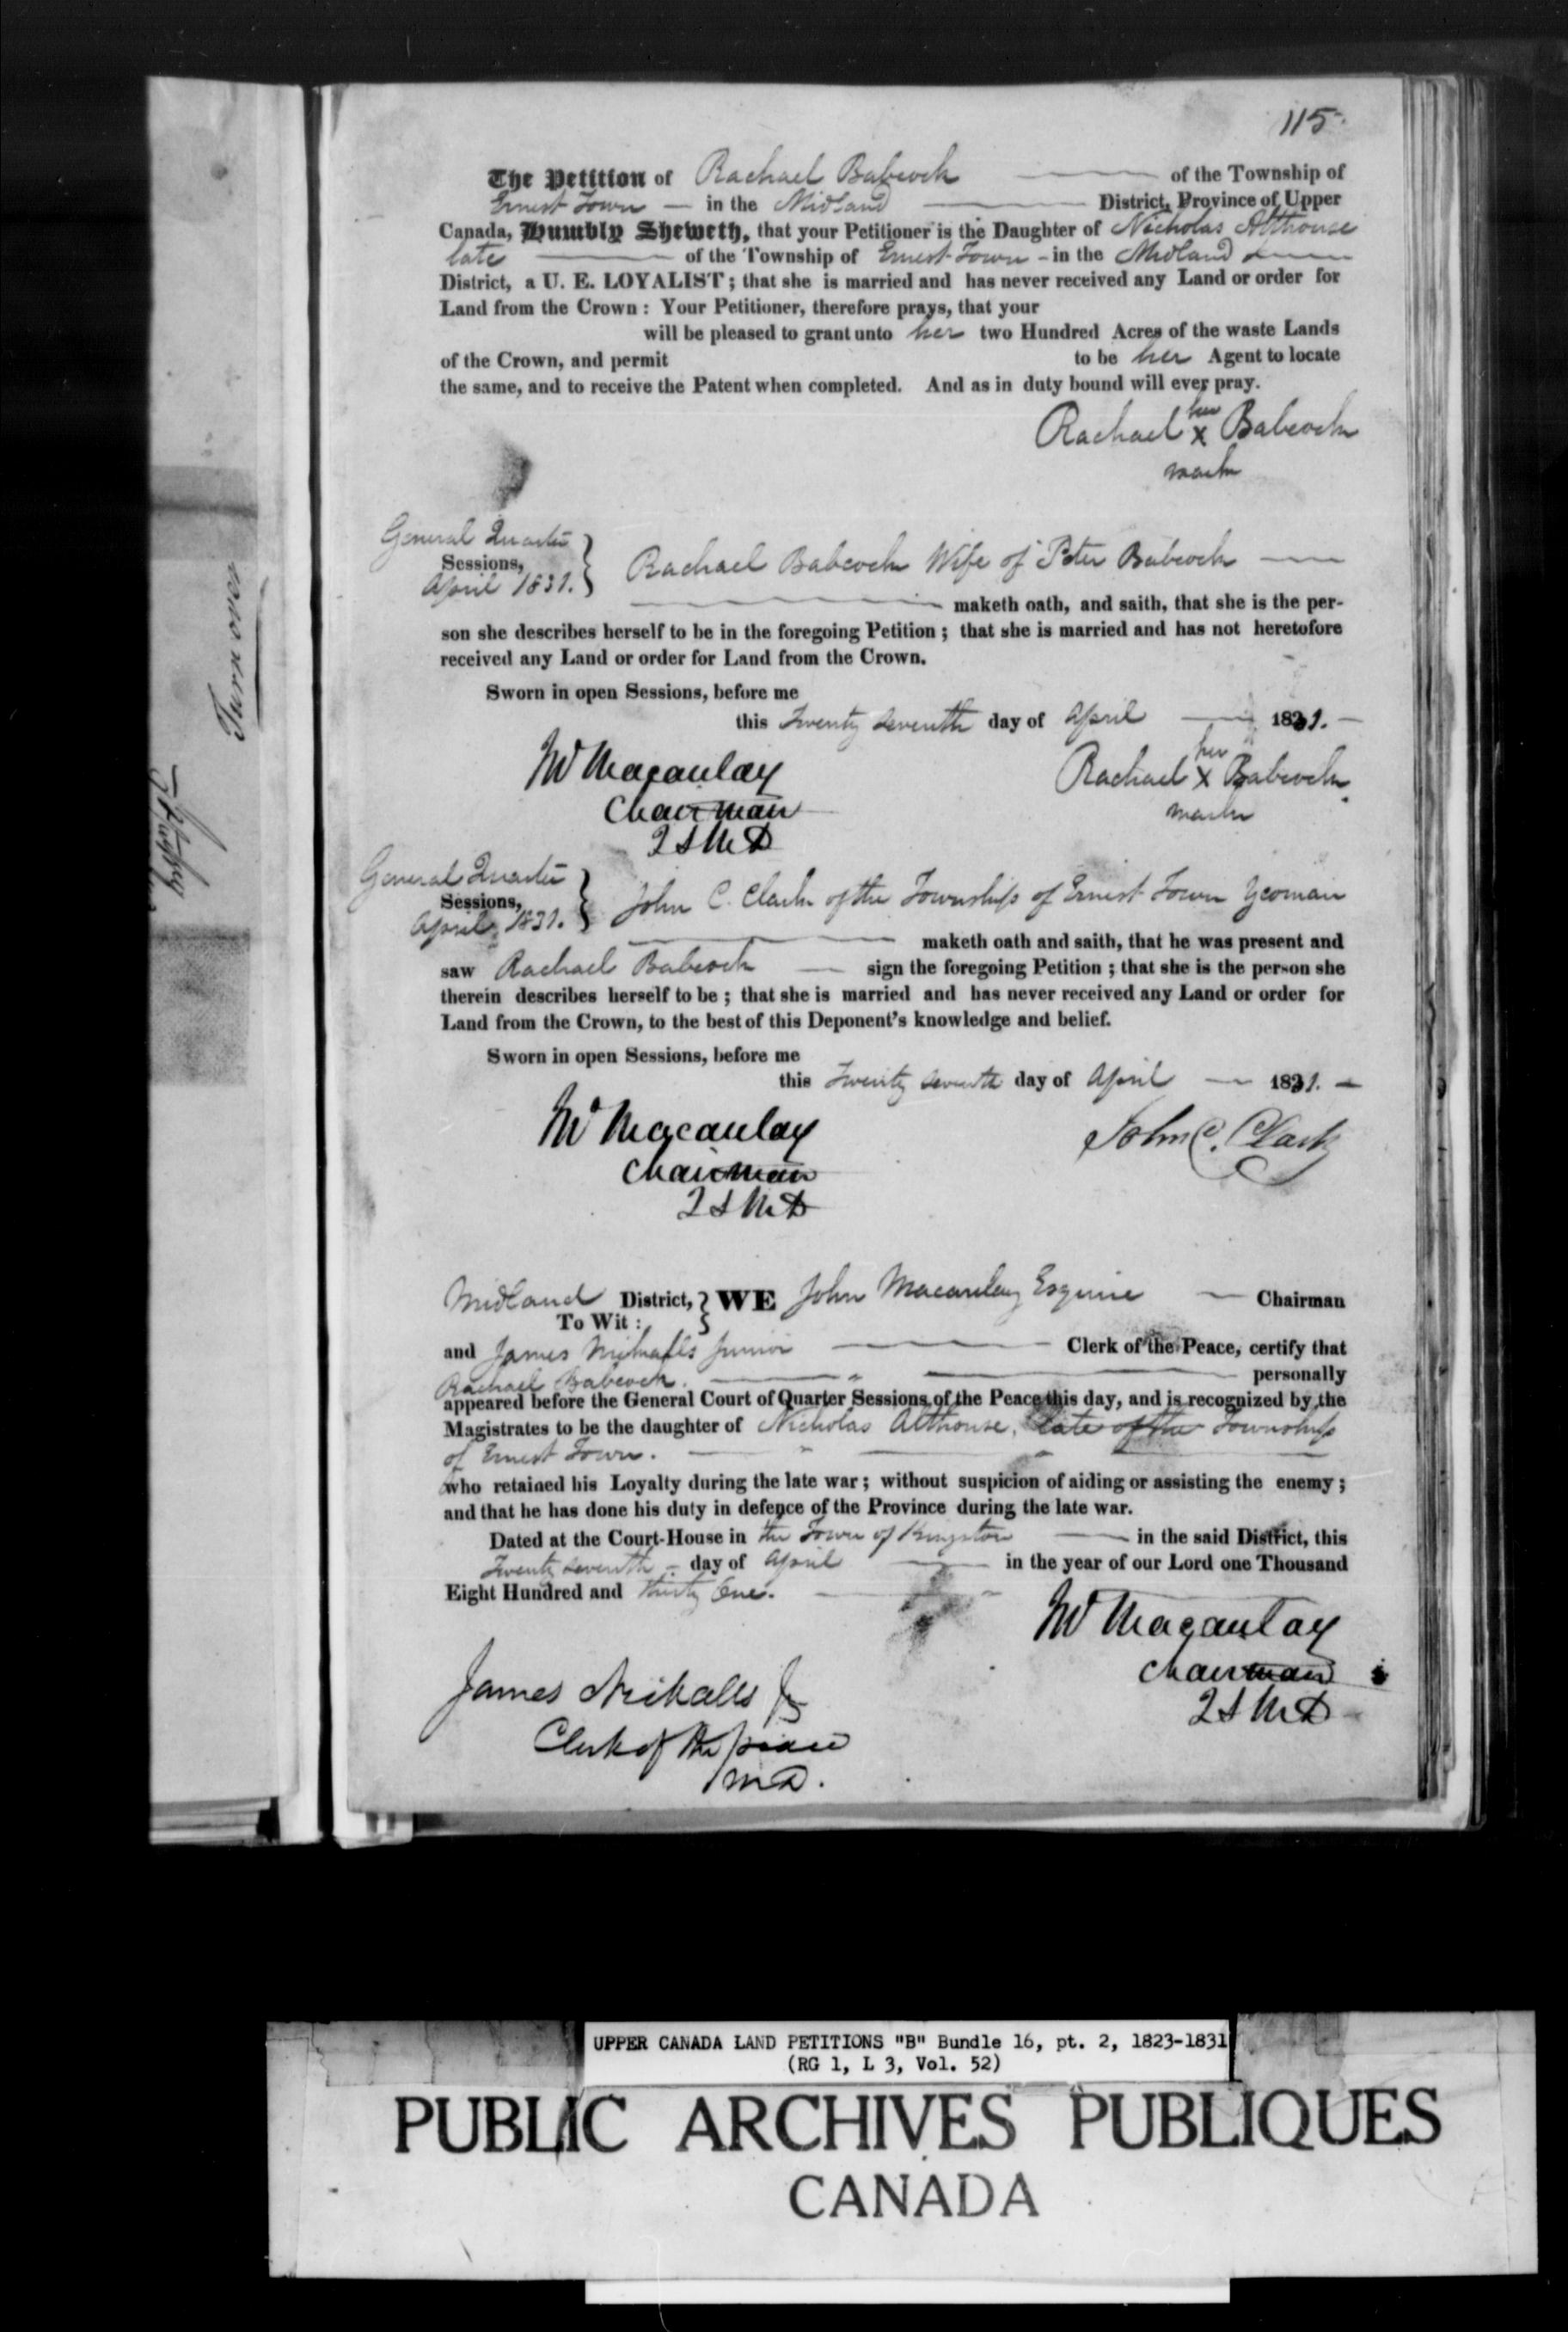 115.
The Petition of Rachael Babcock of the Township of
Ernest Town — in the Midland District, Province of Upper
Canada, Humbly Sheweth, that your Petitioner is the Daughter of Nicholas Althouse
late of the Township of Ernest Town - in the Midland
District, a U. E. LOYALIST; that she is married and has never received any Land or order for
Land from the Crown: Your Petitioner, therefore prays, that your
will be pleased to grant unto her two Hundred Acres of the waste Lands
of the Crown, and permit to be her Agent to locate
the same, and to receive the Patent when completed. And as in duty bound will ever pray.
her
Rachael x Babcock
mark
General Quarter
Sessions,
April 1831. } Rachael Babcock Wife of Peter Babcock —
maketh oath, and saith, that she is the per-
son she describes herself to be in the foregoing Petition; that she is married and has not heretofore
received any Land or order for Land from the Crown.
Sworn in open Sessions, before me
this Twenty seventh day of April — 1831. —
her
Jno Macaulay Rachael x Babcock
Chairman mark
Q S M D
General Quarter
Sessions,
April, 1831. } John C. Clark of the Township of Ernest Town Yeoman
maketh oath and saith, that he was present and
saw Rachael Babcock — sign the foregoing Petition; that she is the person she
therein describes herself to be; that she is married and has never received any Land or order for
Land from the Crown, to the best of this Deponent's knowledge and belief.
Sworn in open Sessions, before me
this Twenty seventh day of April — 1831. —
Jno Macaulay John C. Clark
Chairman
Q S M D
Midland District, } WE John Macaulay Esquire — Chairman
To Wit:
and James Nickalls Junior — Clerk of the Peace, certify that
Rachael Babcock. personally
appeared before the General Court of Quarter Sessions of the Peace this day, and is recognized by the
Magistrates to be the daughter of Nicholas Althouse, late of the Township
of Ernest Town.
who retained his Loyalty during the late war; without suspicion of aiding or assisting the enemy;
and that he has done his duty in defence of the Province during the late war.
Dated at the Court-House in the Town of Kingston — in the said District, this
Twenty seventh - day of April — in the year of our Lord one Thousand
Eight Hundred and thirty One.
Jno Macaulay
Chairman
Q S M D
James Nickalls Jr
Clerk of the peace
M.D.
Turn over
UPPER CANADA LAND PETITIONS "B" Bundle 16, pt. 2, 1823-1831
(RG 1, L 3, Vol. 52)
PUBLIC ARCHIVES PUBLIQUES
CANADA